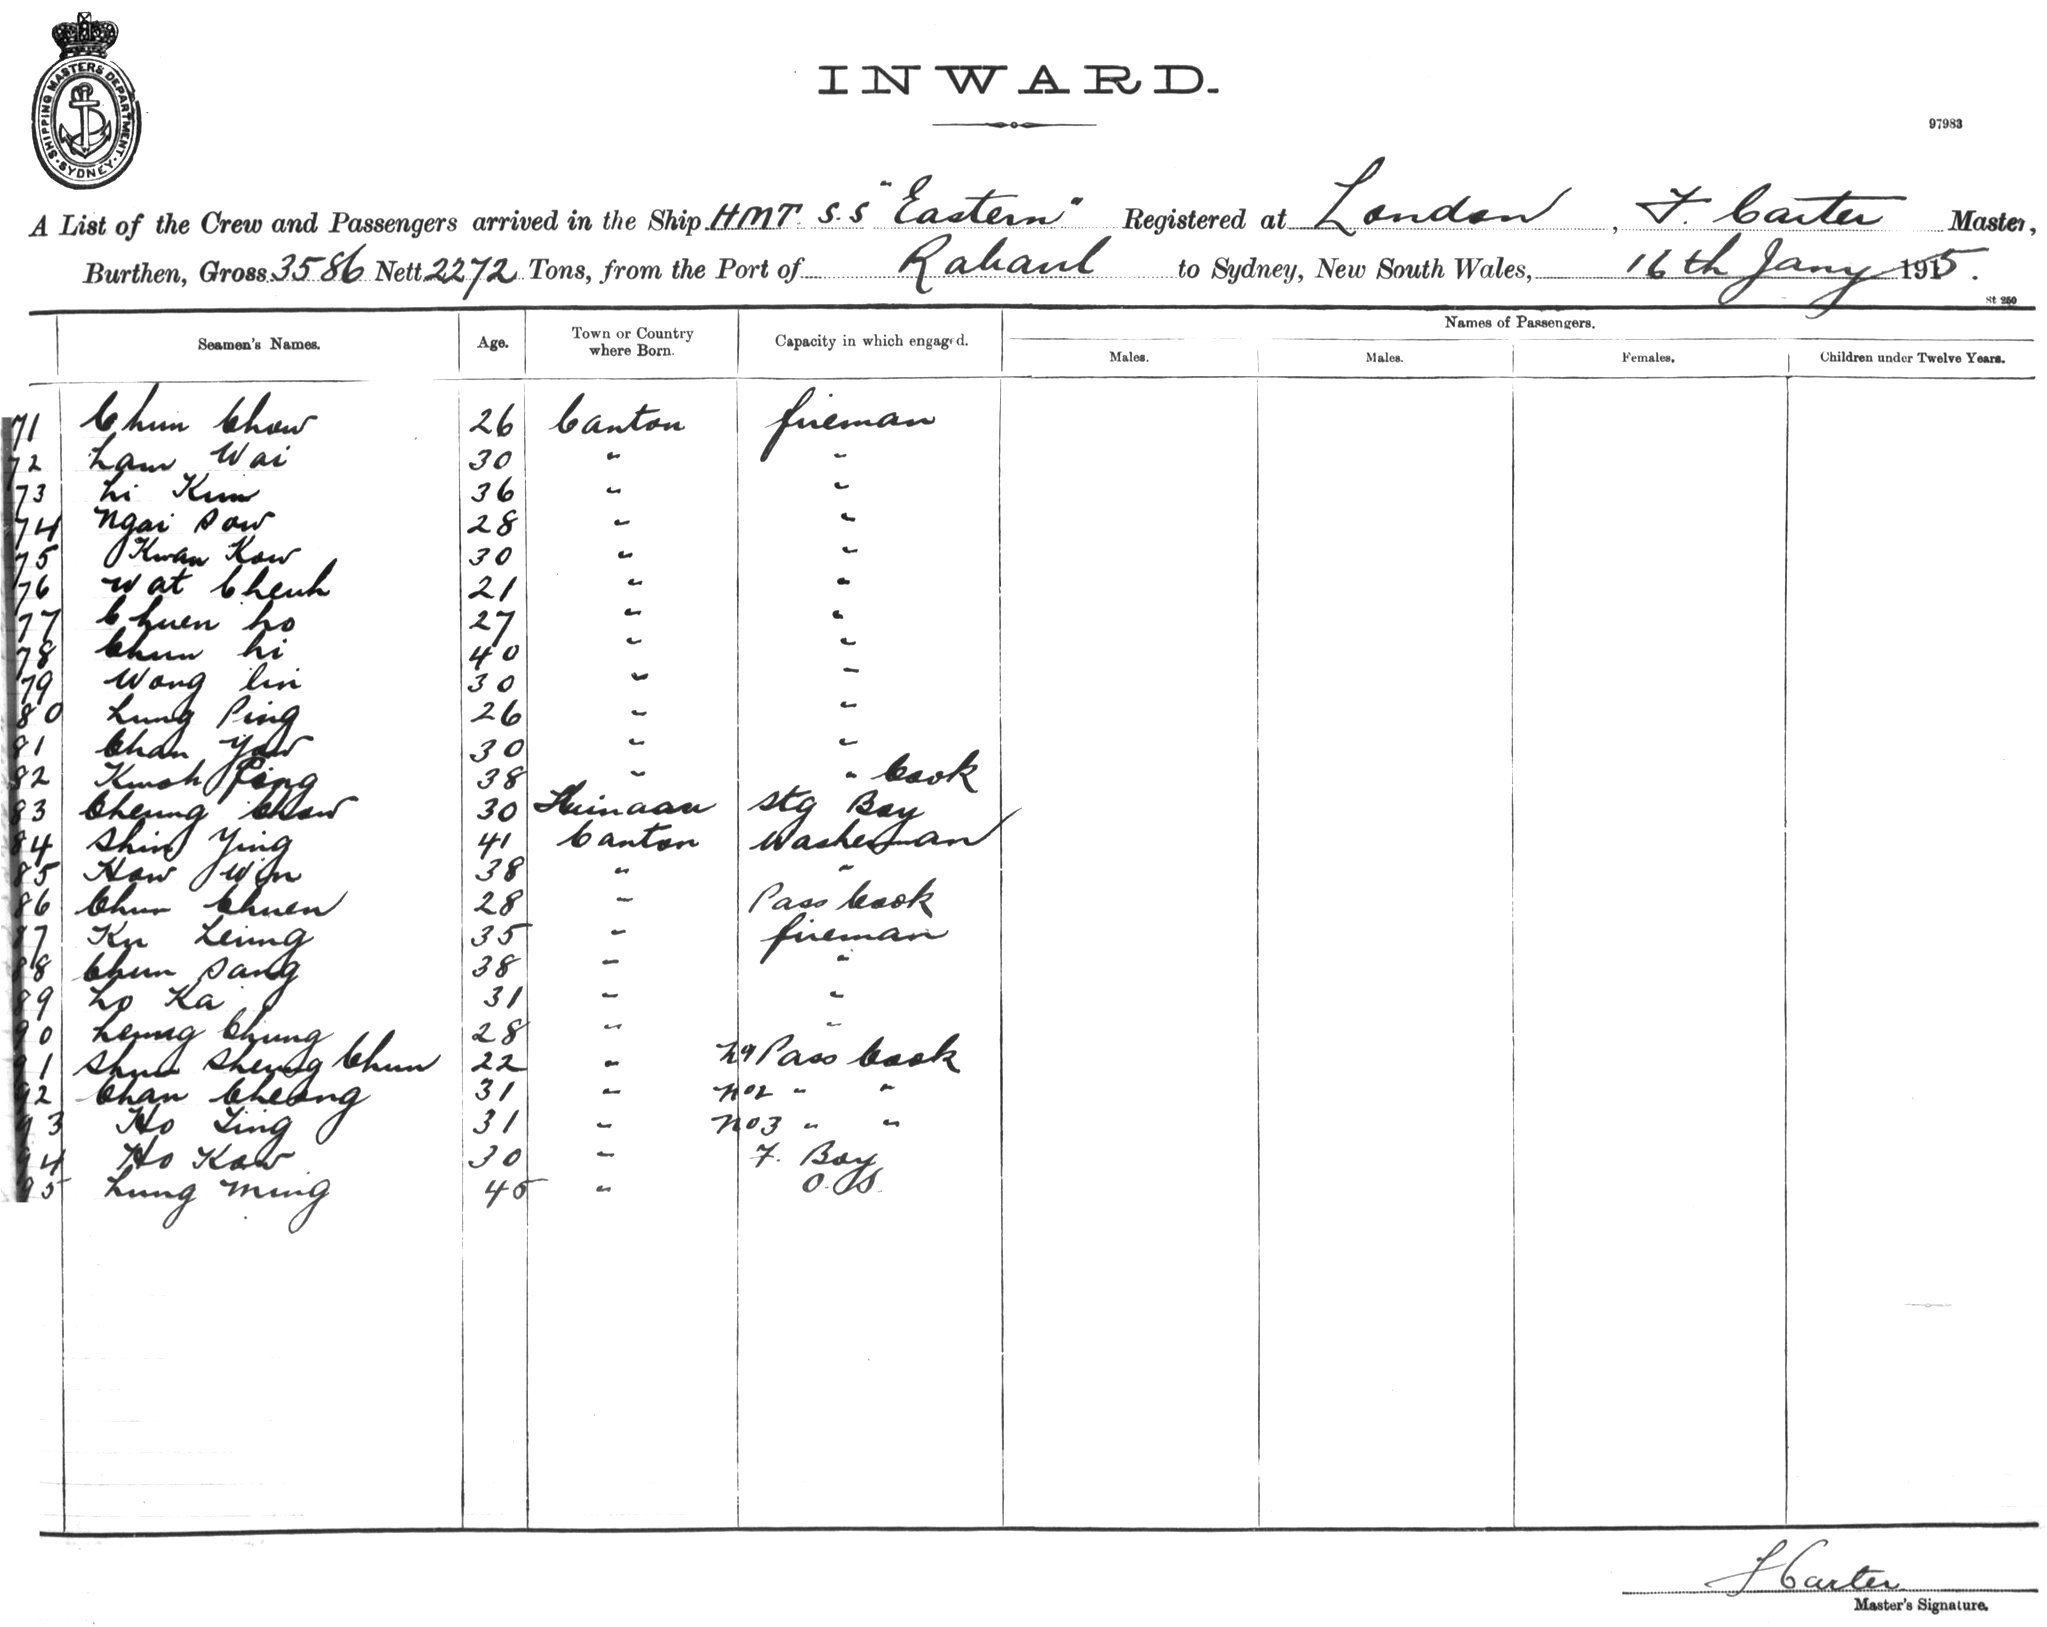 SHIPPING MASTERS DEPARTMENT · SYDNEY ·
INWARD.
97983
A List of the Crew and Passengers arrived in the Ship HMT S.S "Eastern" Registered at London, F. Carter Master,
Burthen, Gross 3586 Nett 2272 Tons, from the Port of Rabaul to Sydney, New South Wales, 16th Jany 1915.
St 250
Seamen's Names. Age. Town or Country where Born. Capacity in which engaged. Names of Passengers.
Males. Males. Females. Children under Twelve Years.
71 Chun Chow 26 Canton fireman
72 Lam Wai 30 " "
73 Li Kum 36 " "
74 Ngai Sow 28 " "
75 Kwan Kow 30 " "
76 Wat Cheuk 21 " "
77 Chuen Lo 27 " "
78 Chun Li 40 " "
79 Wong Lin 30 " "
80 Lung Ping 26 " "
81 Chan Yow 30 " "
82 Kwok Ping 38 " " Cook
83 Cheung Chow 30 Stg Boy
84 Shin Ying 41 Canton Washerman
85 How Win 38 " "
86 Chun Chuen 28 " Pass Cook
87 Ku Leung 35 " fireman
88 Chun Sang 38 " "
89 Lo Ka 31 " "
90 Leung Chung 28 " "
91 Shun Sheung Chun 22 " Pass Cook
92 Chan Cheong 31 " No2 " "
93 Ho Ting 31 " No3 " "
94 Ho Kow 30 " F. Boy
95 Lung Ming 45 " O.S.
F Carter
Master's Signature.